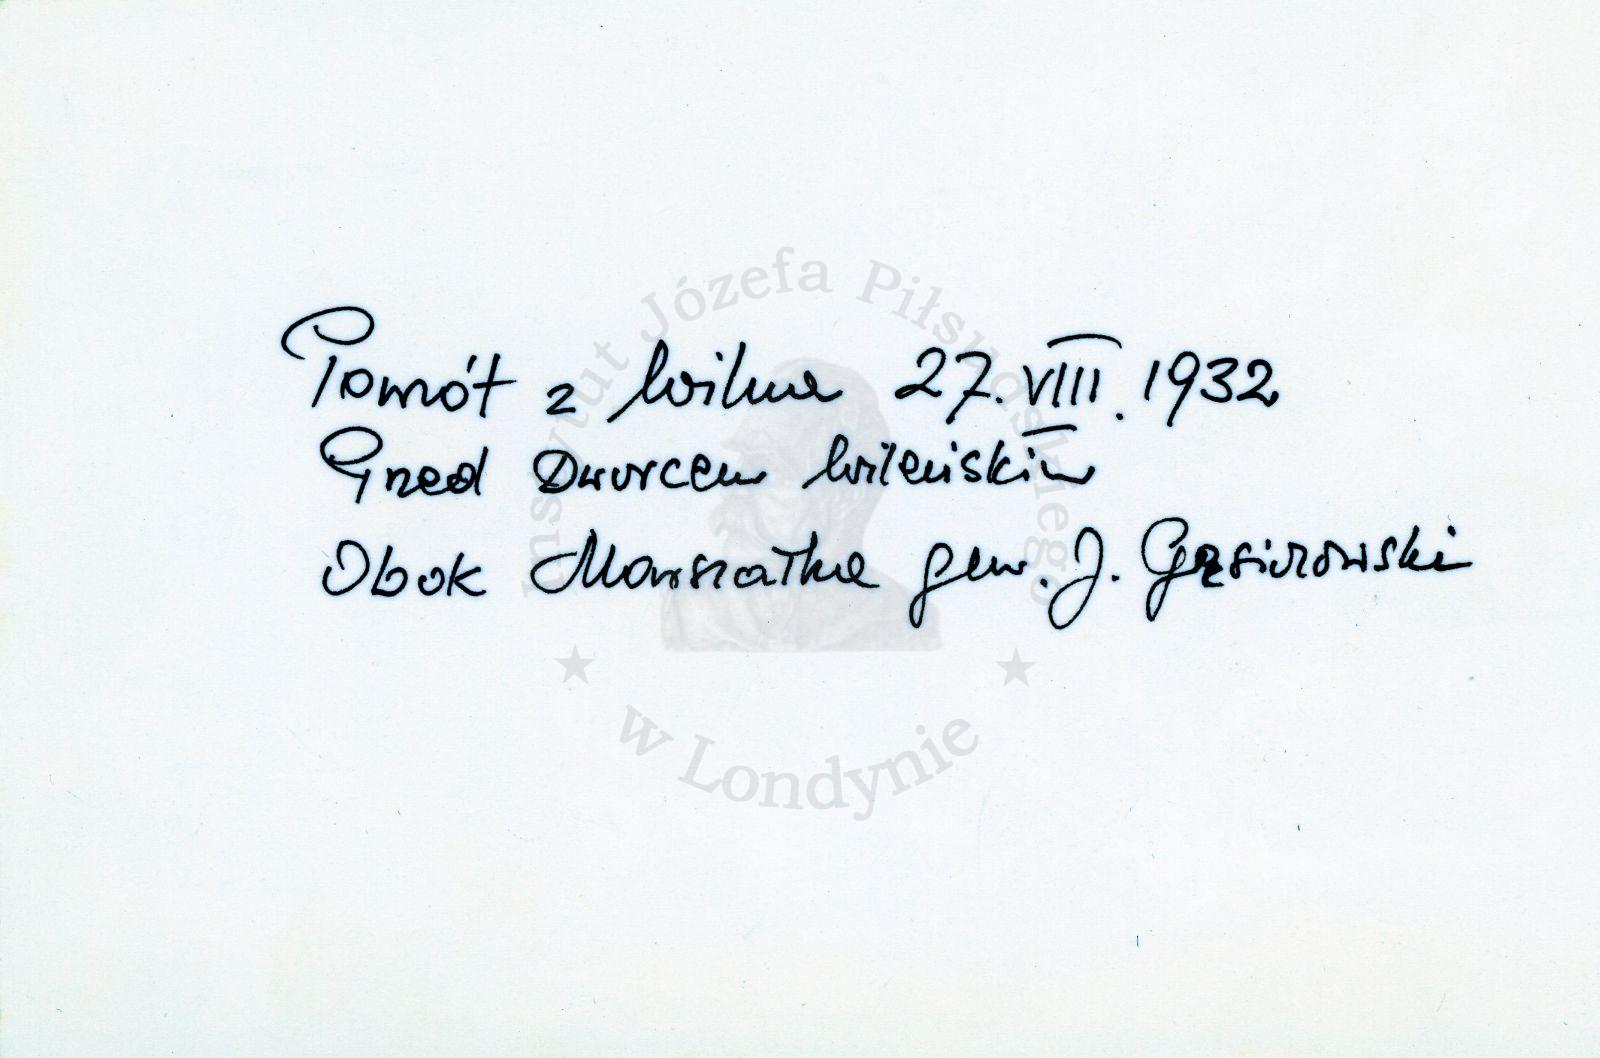 Powrót z Wilna 27.VIII.1932
Przed Dworcem Wileńskim
Obok Marszałka gen. J. Gąsiorowski
Instytut Józefa Piłsudskiego
w Londynie